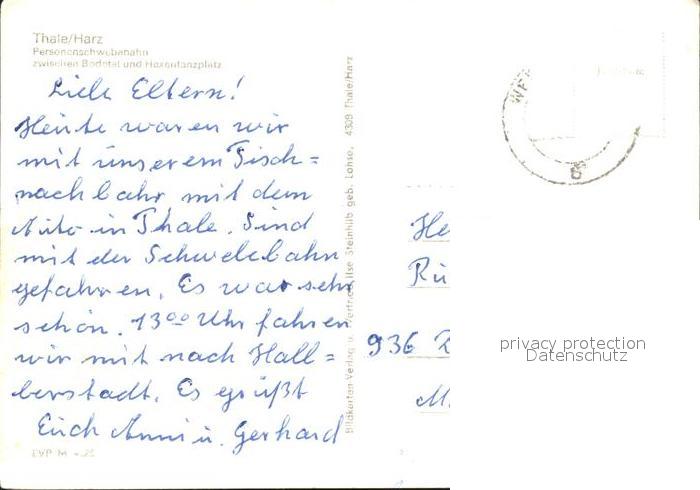 Thale/Harz
Personenschwebebahn
zwischen Bodetal und Hexentanzplatz
Liebe Eltern!
Heute waren wir
mit unserem Tisch=
nachbahr mit dem
Auto in Thale. Sind
mit der Schwebebahn
gefahren. Es war sehr
schön. 13⁰⁰ Uhr fahren
wir mit nach Hall=
berstadt. Es grüßt
Euch Anni u. Gerhard
EVP M -,25
Bildkarten-Verlag u. Vertrieb Ilse Steinhilb geb. Lohse, 4308 Thale/Harz
He
Rü
936
M
privacy protection
Datenschutz